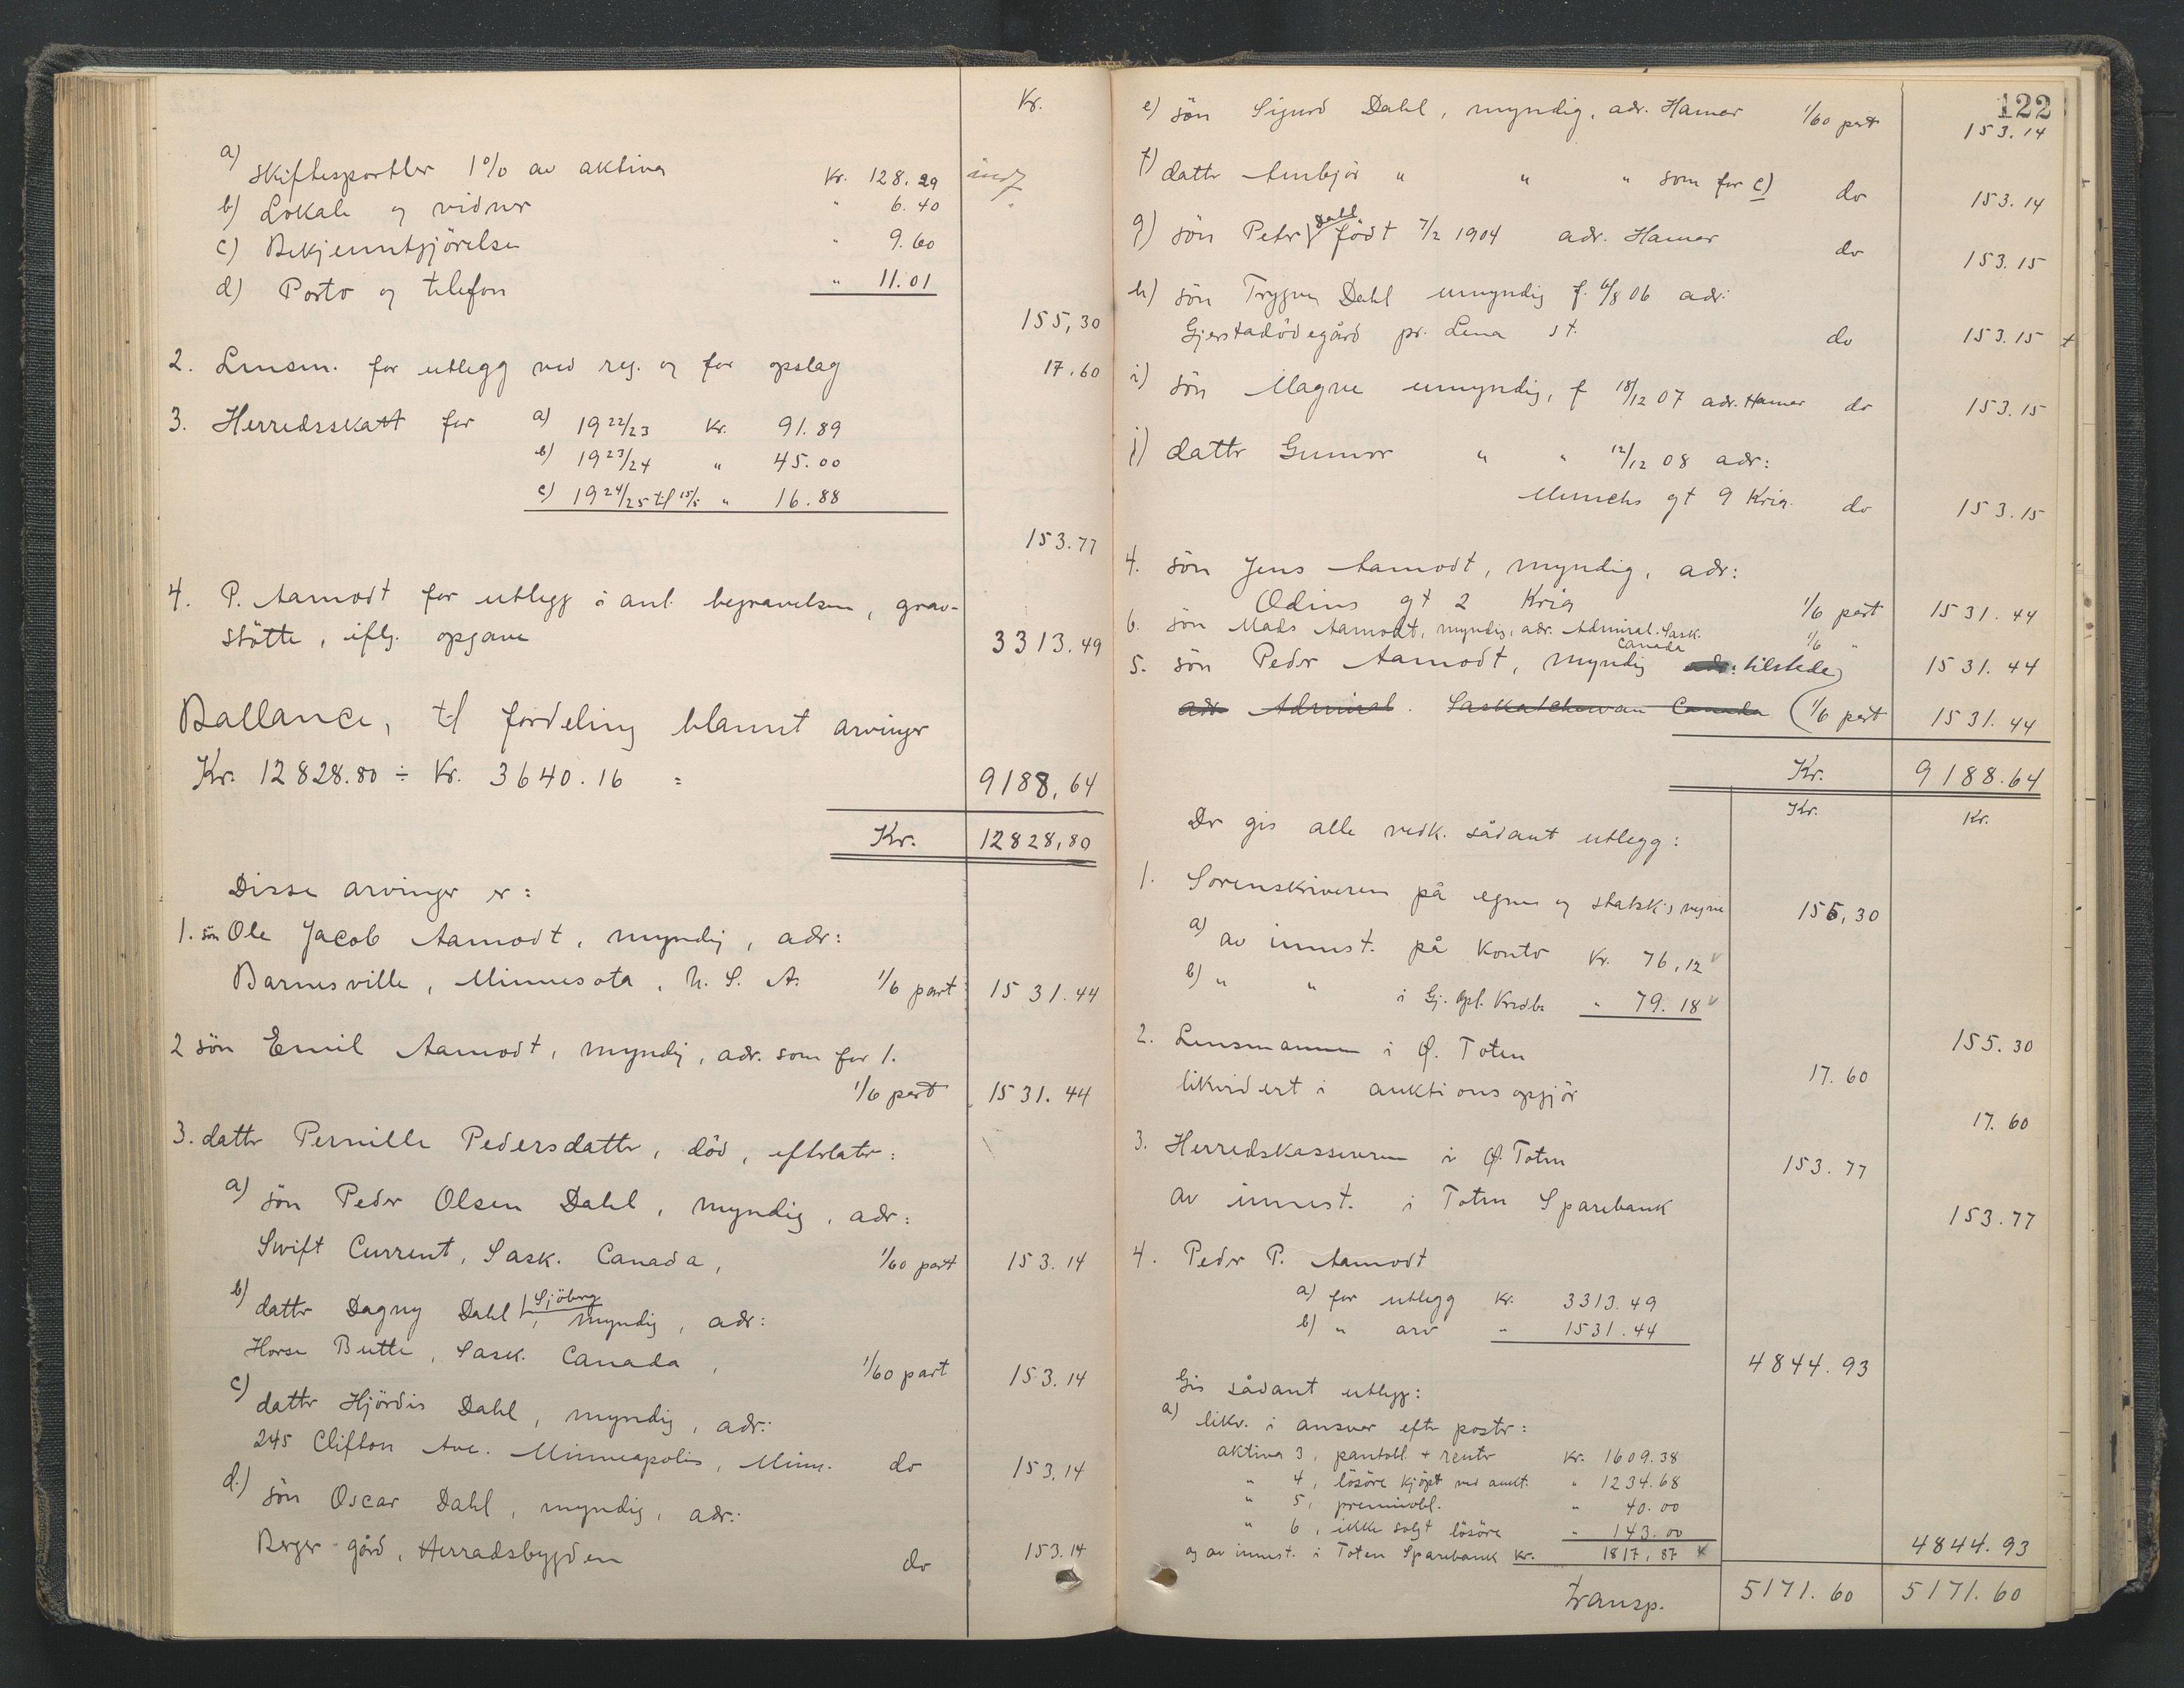 Kr.
a) Skiftesportler 1% av aktiva Kr. 128.29
b) Lokale og vidner " 6.40
c) Bekjenntgjörelse " 9.60
d) Porto og telefon " 11.01
155,30
2. Lensm. for utlegg ved reg. og for opslag 17.60
3. Herredsskatt for a) 19 22/23 Kr. 91.89
b) 19 23/24 " 45.00
c) 19 24/25 til 15/5 " 16.88
153.77
4. P. Aamodt for utlegg i anl. begravelsen, grav-
stötte, iflg. opgave 3313.49
Ballance, til fordeling blannt arvinger
Kr. 12828.80 ÷ Kr. 3640.16 = 9188,64
Kr. 12828,80
Disse arvinger er:
1. sön Ole Jacob Aamodt, myndig, adr:
Barnesville, Minnesota, U. S. A. 1/6 part 1531.44
2 sön Emil Aamodt, myndig, adr. som for 1.
1/6 part 1531.44
3. datter Pernille Pedersdatter, död, efterlater:
a) sön Peder Olsen Dahl, myndig, adr:
Swift Current, Sask. Canada, 1/60 part 153.14
b) datter Dagny Dahl, Sjöberg, myndig, adr:
Horse Butte, Sask. Canada, 1/60 part 153.14
c) datter Hjördis Dahl, myndig, adr:
245 Clifton Ave. Minneapolis, Minn. do 153.14
d.) sön Oscar Dahl, myndig, adr:
Berger gård, Herradsbygden do 153.14
122
e) sön Sigurd Dahl, myndig, adr. Hamar 1/60 part 153.14
f) datter Annbjör " " " som for e) do 153.14
g) sön Peter Dahl födt 7/2 1904 adr. Hamar do 153.15
h) sön Trygve Dahl umyndig f. 6/8 06 adr:
Gjerstadödegård pr. Lena st. do 153.15 +
i) sön Magne umyndig, f 18/12 07 adr. Hamar do 153.15
j) datter Gunvor " " 12/12 08 adr:
Munchs gt 9 Kria. do 153.15
4. sön Jens Aamodt, myndig, adr:
Odins gt 2 Kria 1/6 part 1531.44
6. sön Mads Aamodt, myndig, adr. Admiral. Sask. Canada 1/6 "
5. sön Peder Aamodt, myndig adr: tilstede 1531.44
adr. Admiral. Saskatchewan Canada 1/6 part 1531.44
Kr. 9188.64
Kr. Kr.
Der gis alle vedk. sådant utlegg:
1. Sorenskriveren på egne og statsk's vegne 155,30
a) av innest. på konto Kr. 76,12
b) " " i Gj. opl. Kredb. " 79.18
155.30
2. Lensmannen i Ø. Toten 17.60
likvidert i auktionsopgjör
17.60
3. Herredskassereren i Ø. Toten 153.77
av innest. i Toten Sparebank
153.77
4. Peder P. Aamodt
a) for utlegg Kr. 3313.49
b) " arv " 1531.44
4844.93
Gis sådant utlegg:
a) likv. i ansvar efter poster:
aktiva 3, pantobl. + renter Kr. 1609.38
" 4, lösöre kjöpt ved aukt. " 1234.68
" 5, premieobl. " 40.00
" 6, ikke solgt lösöre " 143.00
og av innest. i Toten Sparebank Kr. 1817,87
4844.93
Transp. 5171.60 5171.60